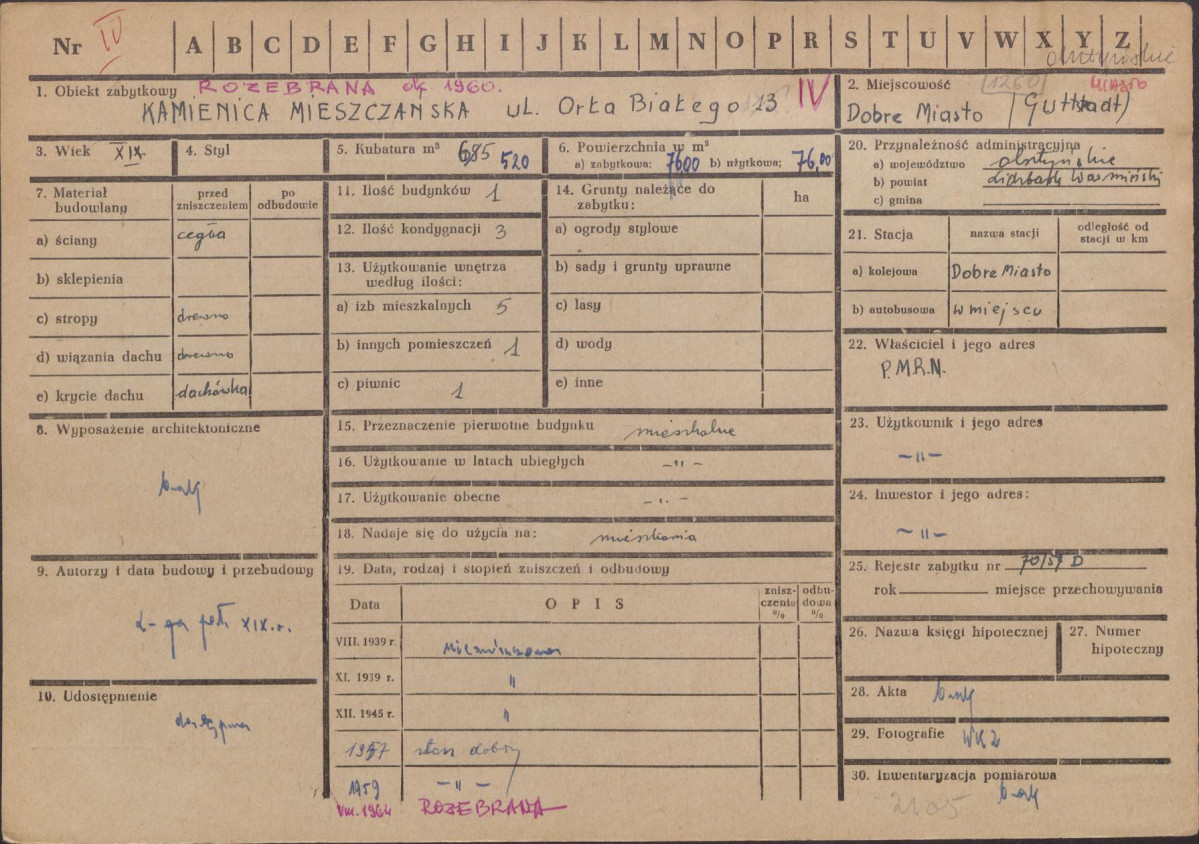 Nr IV A B C D E F G H I J K L M N O P R S T U V W X Y Z
olsztyńskie
1. Obiekt zabytkowy ROZEBRANA ok. 1960.
KAMIENICA MIESZCZAŃSKA ul. Orła Białego 13 IV
2. Miejscowość 1260 MIASTO
Dobre Miasto (Guttstadt)
3. Wiek XIX.
4. Styl
5. Kubatura m³ 685 520
6. Powierzchnia w m²
a) zabytkowa: 76,00 b) użytkowa; 76,00
7. Materiał budowlany
przed zniszczeniem
po odbudowie
a) ściany cegła
b) sklepienia
c) stropy drewno
d) wiązania dachu drewno
e) krycie dachu dachówka
8. Wyposażenie architektoniczne
brak
9. Autorzy i data budowy i przebudowy
2-ga poł. XIX.r.
10. Udostępnienie
dostępna
11. Ilość budynków 1
12. Ilość kondygnacji 3
13. Użytkowanie wnętrza
według ilości:
a) izb mieszkalnych 5
b) innych pomieszczeń 1
c) piwnic 1
14. Grunty należące do
zabytku:
ha
a) ogrody stylowe
b) sady i grunty uprawne
c) lasy
d) wody
e) inne
15. Przeznaczenie pierwotne budynku mieszkalne
16. Użytkowanie w latach ubiegłych -"-
17. Użytkowanie obecne -"-
18. Nadaje się do użycia na: mieszkania
19. Data, rodzaj i stopień zniszczeń i odbudowy
Data OPIS zniszczenie % odbudowa %
VIII. 1939 r. Niezniszczona
XI. 1939 r. "
XII. 1945 r. "
1957 stan dobry
1959 -"-
VIII. 1964 ROZEBRANA
20. Przynależność administracyjna
a) województwo olsztyńskie
b) powiat Lidzbark Warmiński
c) gmina
21. Stacja nazwa stacji odległość od stacji w km
a) kolejowa Dobre Miasto
b) autobusowa w miejscu
22. Właściciel i jego adres
P.M.R.N.
23. Użytkownik i jego adres
-"-
24. Inwestor i jego adres:
-"-
25. Rejestr zabytku nr 70/57 D
rok miejsce przechowywania
26. Nazwa księgi hipotecznej
27. Numer hipoteczny
28. Akta brak
29. Fotografie WKZ
30. Inwentaryzacja pomiarowa
brak
2105